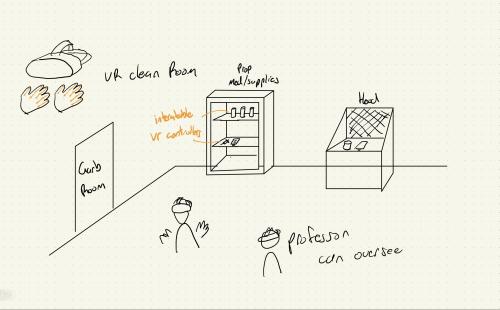 VR clean Room
Prop
Med/supplies
Hood
interactable
VR controllers
Garb
Room
professor
can oversee